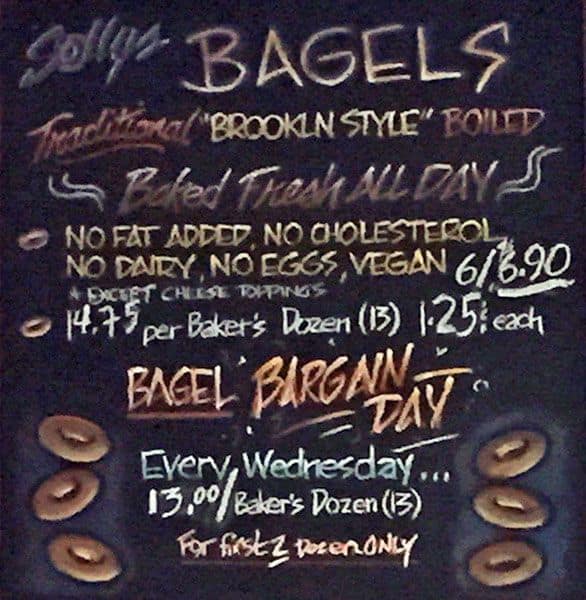 Sollys BAGELS
Traditional "BROOKLN STYLE" BOILED
Baked Fresh ALL DAY
NO FAT ADDED, NO CHOLESTEROL,
NO DAIRY, NO EGGS, VEGAN 6/6.90
* EXCEPT CHEESE TOPPINGS
14.75 per Baker's Dozen (13) 1.25¢ each
BAGEL BARGAIN
DAY
Every Wednesday...
13.00/Baker's Dozen (13)
For first 2 Dozen ONLY